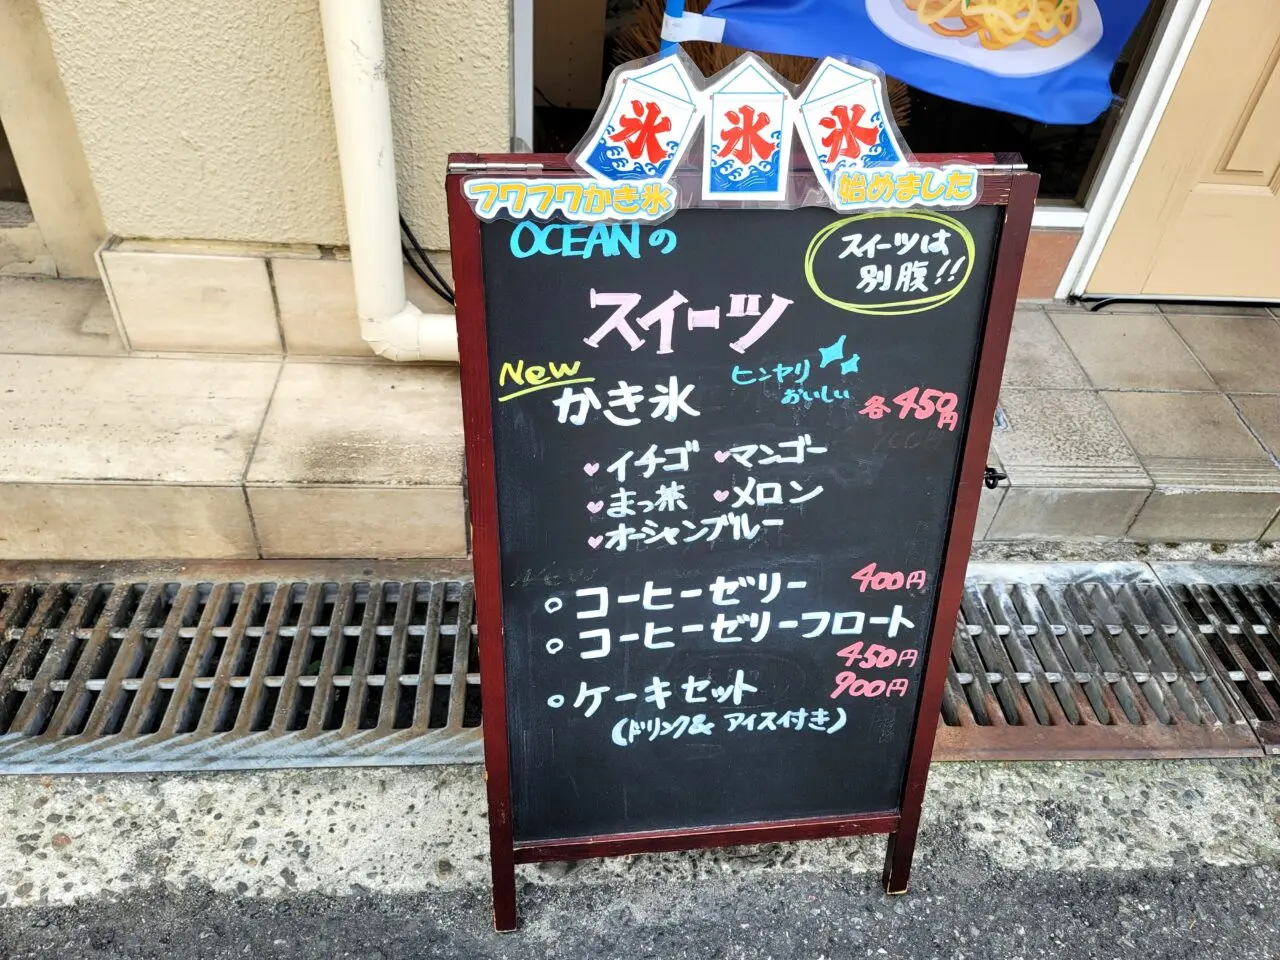 氷 氷 氷
フワフワかき氷 始めました
OCEANの
スイーツは
別腹!!
スイーツ
New
かき氷
ヒンヤリ
おいしい
各450円
♥イチゴ ♥マンゴー
♥まっ茶 ♥メロン
♥オーシャンブルー
○コーヒーゼリー 400円
○コーヒーゼリーフロート
450円
○ケーキセット 900円
(ドリンク& アイス付き)